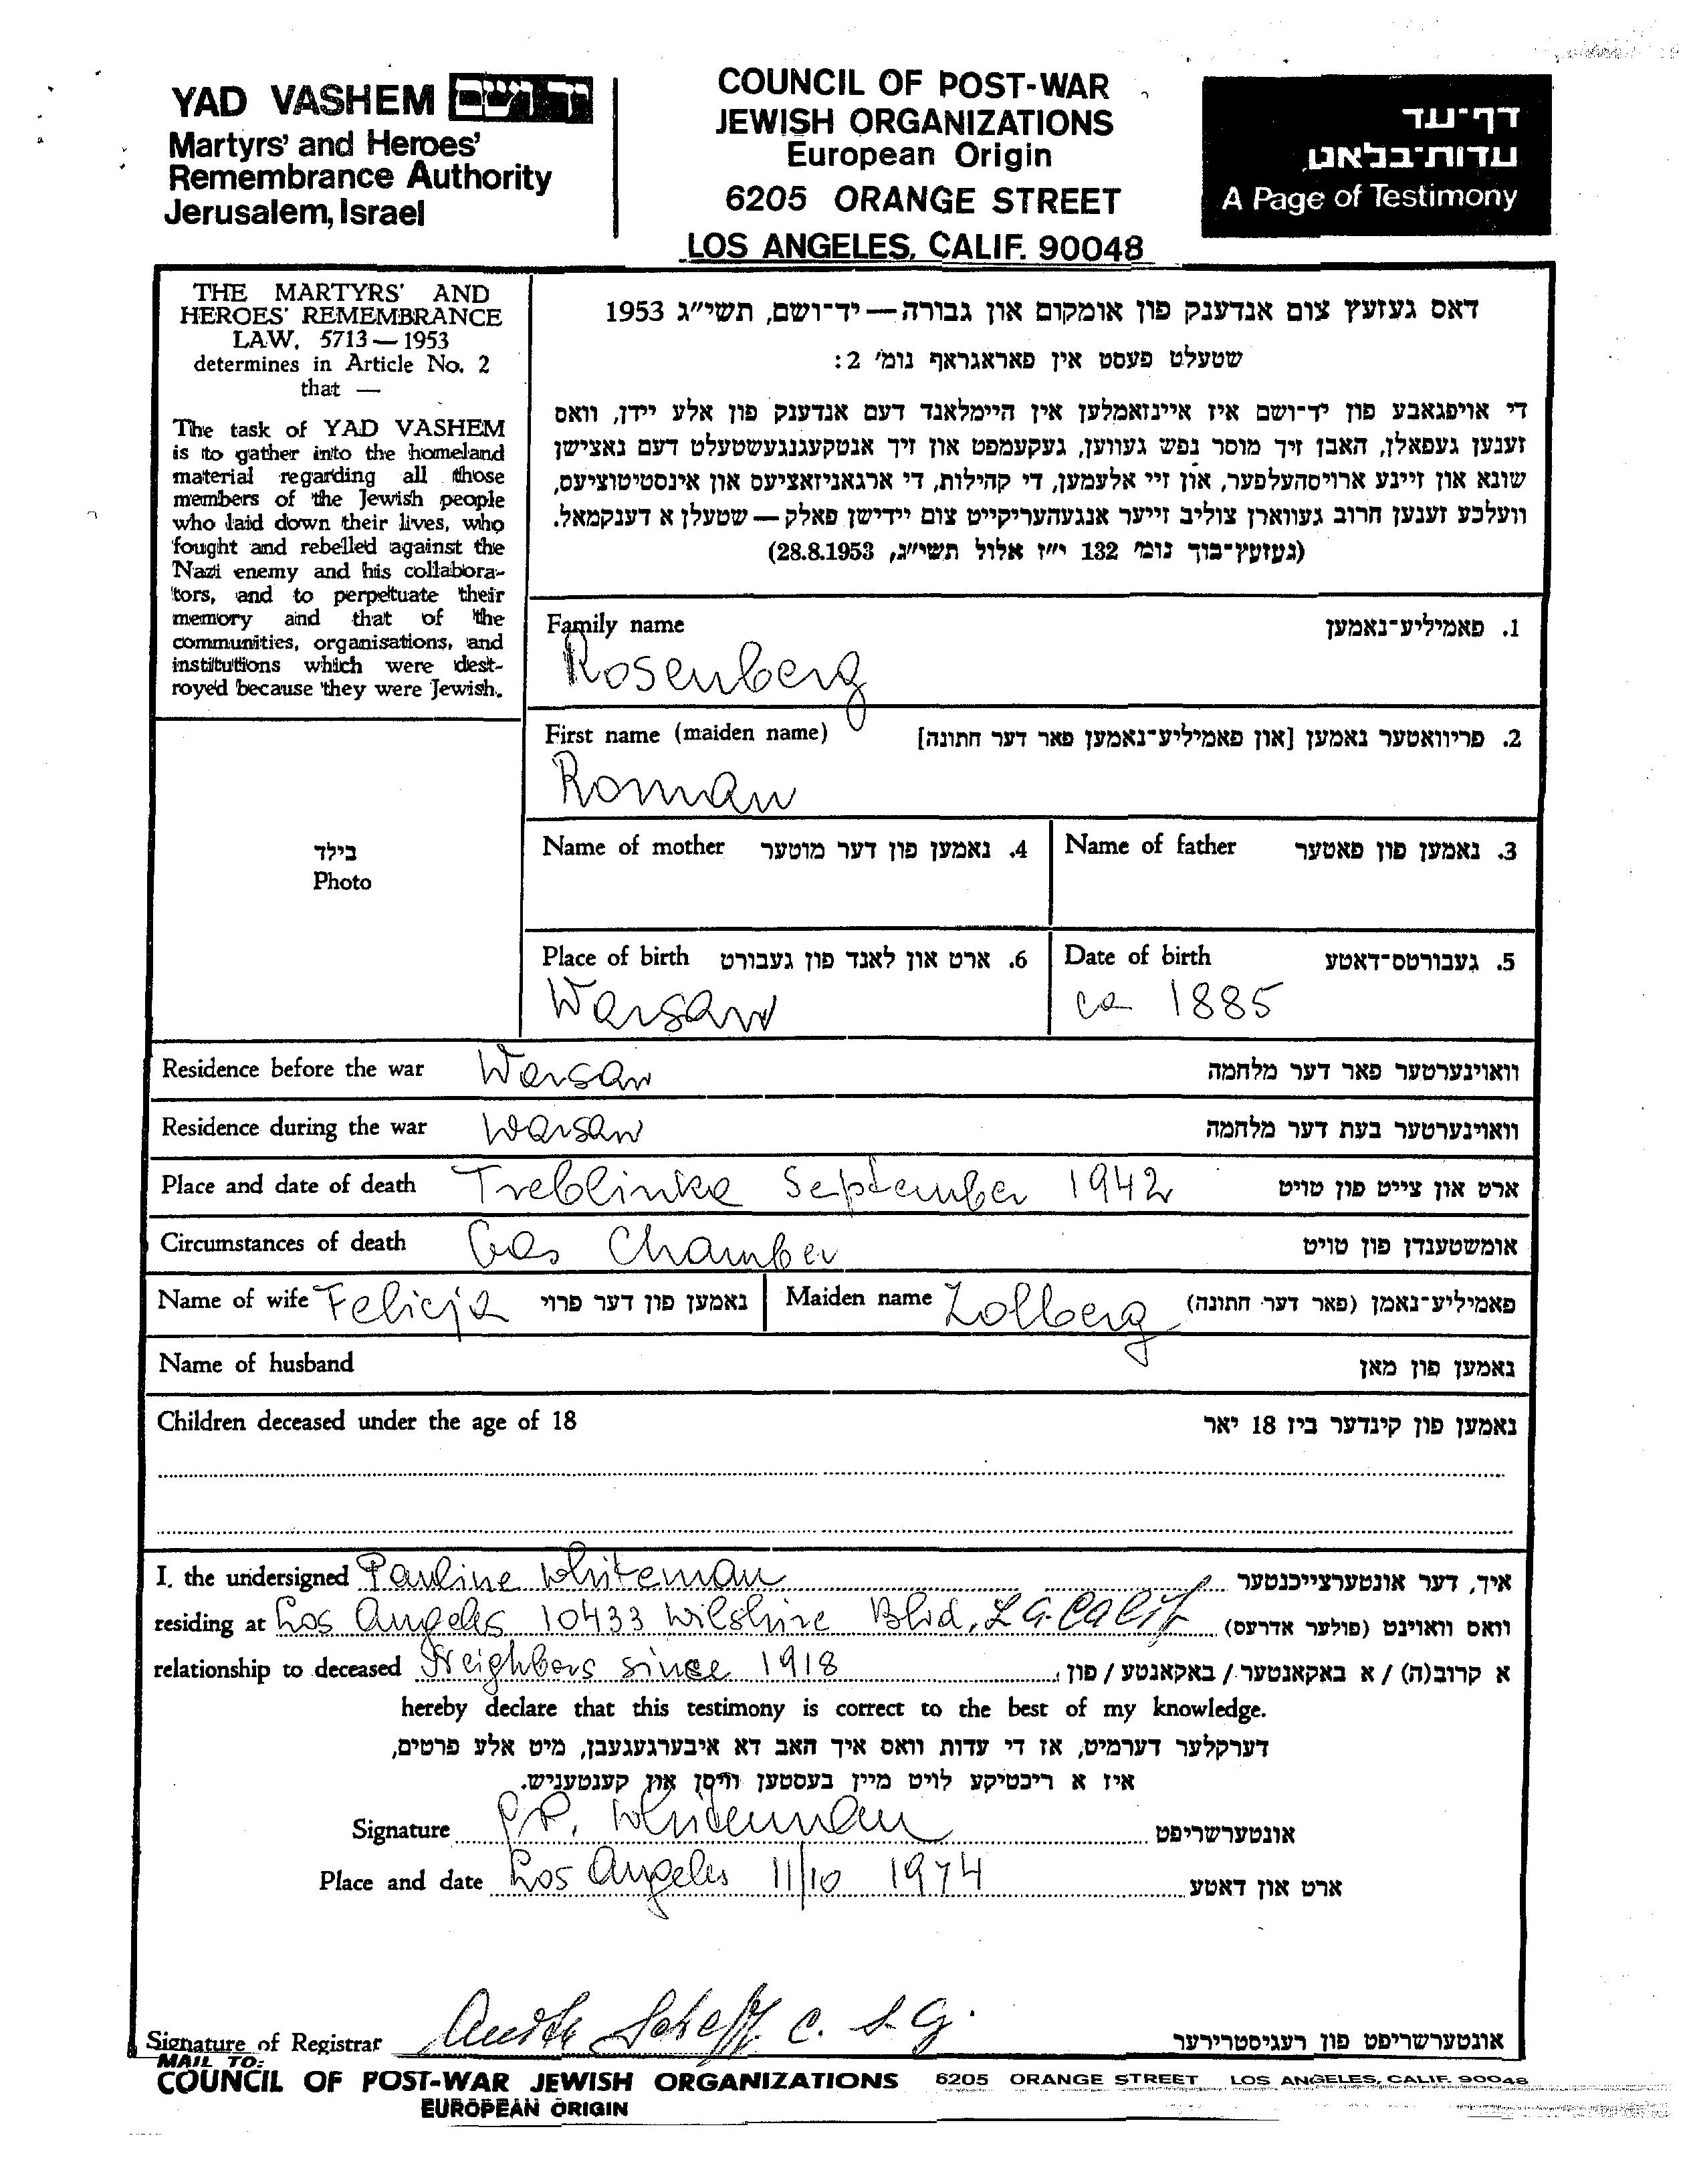 YAD VASHEM יד ושם
Martyrs' and Heroes'
Remembrance Authority
Jerusalem, Israel
COUNCIL OF POST-WAR
JEWISH ORGANIZATIONS
European Origin
6205 ORANGE STREET
LOS ANGELES, CALIF. 90048
דף־עד
עדות־בלאט
A Page of Testimony
THE MARTYRS' AND
HEROES' REMEMBRANCE
LAW, 5713—1953
determines in Article No. 2
that —
The task of YAD VASHEM
is to gather into the homeland
material regarding all those
members of the Jewish people
who laid down their lives, who
fought and rebelled against the
Nazi enemy and his collabora-
tors, and to perpetuate their
memory and that of the
communities, organisations, and
institutions which were dest-
royed because they were Jewish.
דאס געזעץ צום אנדענק פון אומקום און גבורה — יד־ושם, תשי״ג 1953
שטעלט פעסט אין פאראגראף נומ׳ 2:
די אויפגאבע פון יד־ושם איז איינזאמלען אין היימלאנד דעם אנדענק פון אלע יידן, וואס
זענען געפאלן, האבן זיך מוסר נפש געווען, געקעמפט און זיך אנטקעגנגעשטעלט דעם נאצישן
שונא און זיינע ארויסהעלפער, און זיי אלעמען, די קהילות, די ארגאניזאציעס און אינסטיטוציעס,
וועלכע זענען חרוב געווארן צוליב זייער אנגעהעריקייט צום יידישן פאלק — שטעלן א דענקמאל.
(געזעץ־בוך נומ׳ 132 י״ז אלול תשי״ג, 28.8.1953)
Family name 1. פאמיליע־נאמען
Rosenberg
First name (maiden name) 2. פריוואטער נאמען [און פאמיליע־נאמען פאר דער חתונה]
Roman
בילד
Photo
Name of mother 4. נאמען פון דער מוטער
Name of father 3. נאמען פון פאטער
Place of birth 6. ארט און לאנד פון געבורט
Warsaw
Date of birth 5. געבורטס־דאטע
ca 1885
Residence before the war Warsaw וואוינערטער פאר דער מלחמה
Residence during the war Warsaw וואוינערטער בעת דער מלחמה
Place and date of death Treblinka September 1942 ארט און צייט פון טויט
Circumstances of death Gas Chamber אומשטענדן פון טויט
Name of wife Felicja נאמען פון דער פרוי Maiden name Zolberg פאמיליע־נאמן (פאר דער חתונה)
Name of husband נאמען פון מאן
Children deceased under the age of 18 נאמען פון קינדער ביז 18 יאר
I, the undersigned Pauline Whiteman איך, דער אונטערצייכנטער
residing at Los Angeles 10433 Wilshire Blvd, L A. Calif וואס וואוינט (פולער אדרעס)
relationship to deceased Neighbors since 1918 א קרוב(ה) / א באקאנטער / באקאנטע / פון
hereby declare that this testimony is correct to the best of my knowledge.
דערקלער דערמיט, אז די עדות וואס איך האב דא איבערגעגעבן, מיט אלע פרטים,
איז א ריכטיקע לויט מיין בעסטען וויסן און קענטעניש.
Signature P.R. Whiteman אונטערשריפט
Place and date Los Angeles 11/10 1974 ארט און דאטע
Signature of Registrar C. S. G. אונטערשריפט פון רעגיסטרירער
MAIL TO:
COUNCIL OF POST-WAR JEWISH ORGANIZATIONS 6205 ORANGE STREET LOS ANGELES, CALIF. 90048
EUROPEAN ORIGIN